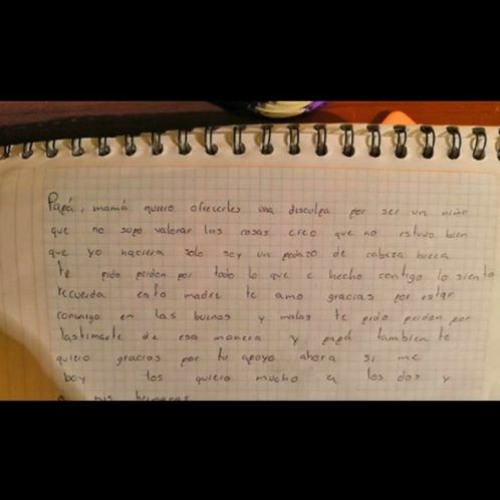 Papá, mamá quiero ofrecerles una disculpa por ser un niño
que no supo valorar las cosas creo que no estuvo bien
que yo naciera solo soy un pedazo de cabeza hueca
te pido perdon por todo lo que e hecho contigo lo siento
recuerda esto madre te amo gracias por estar
conmigo en las buenas y malas te pido perdon por
lastimarte de esa manera y papá tambien te
quiero gracias por tu apoyo ahora si me
boy los quiero mucho a los dos y
a mis hermanos